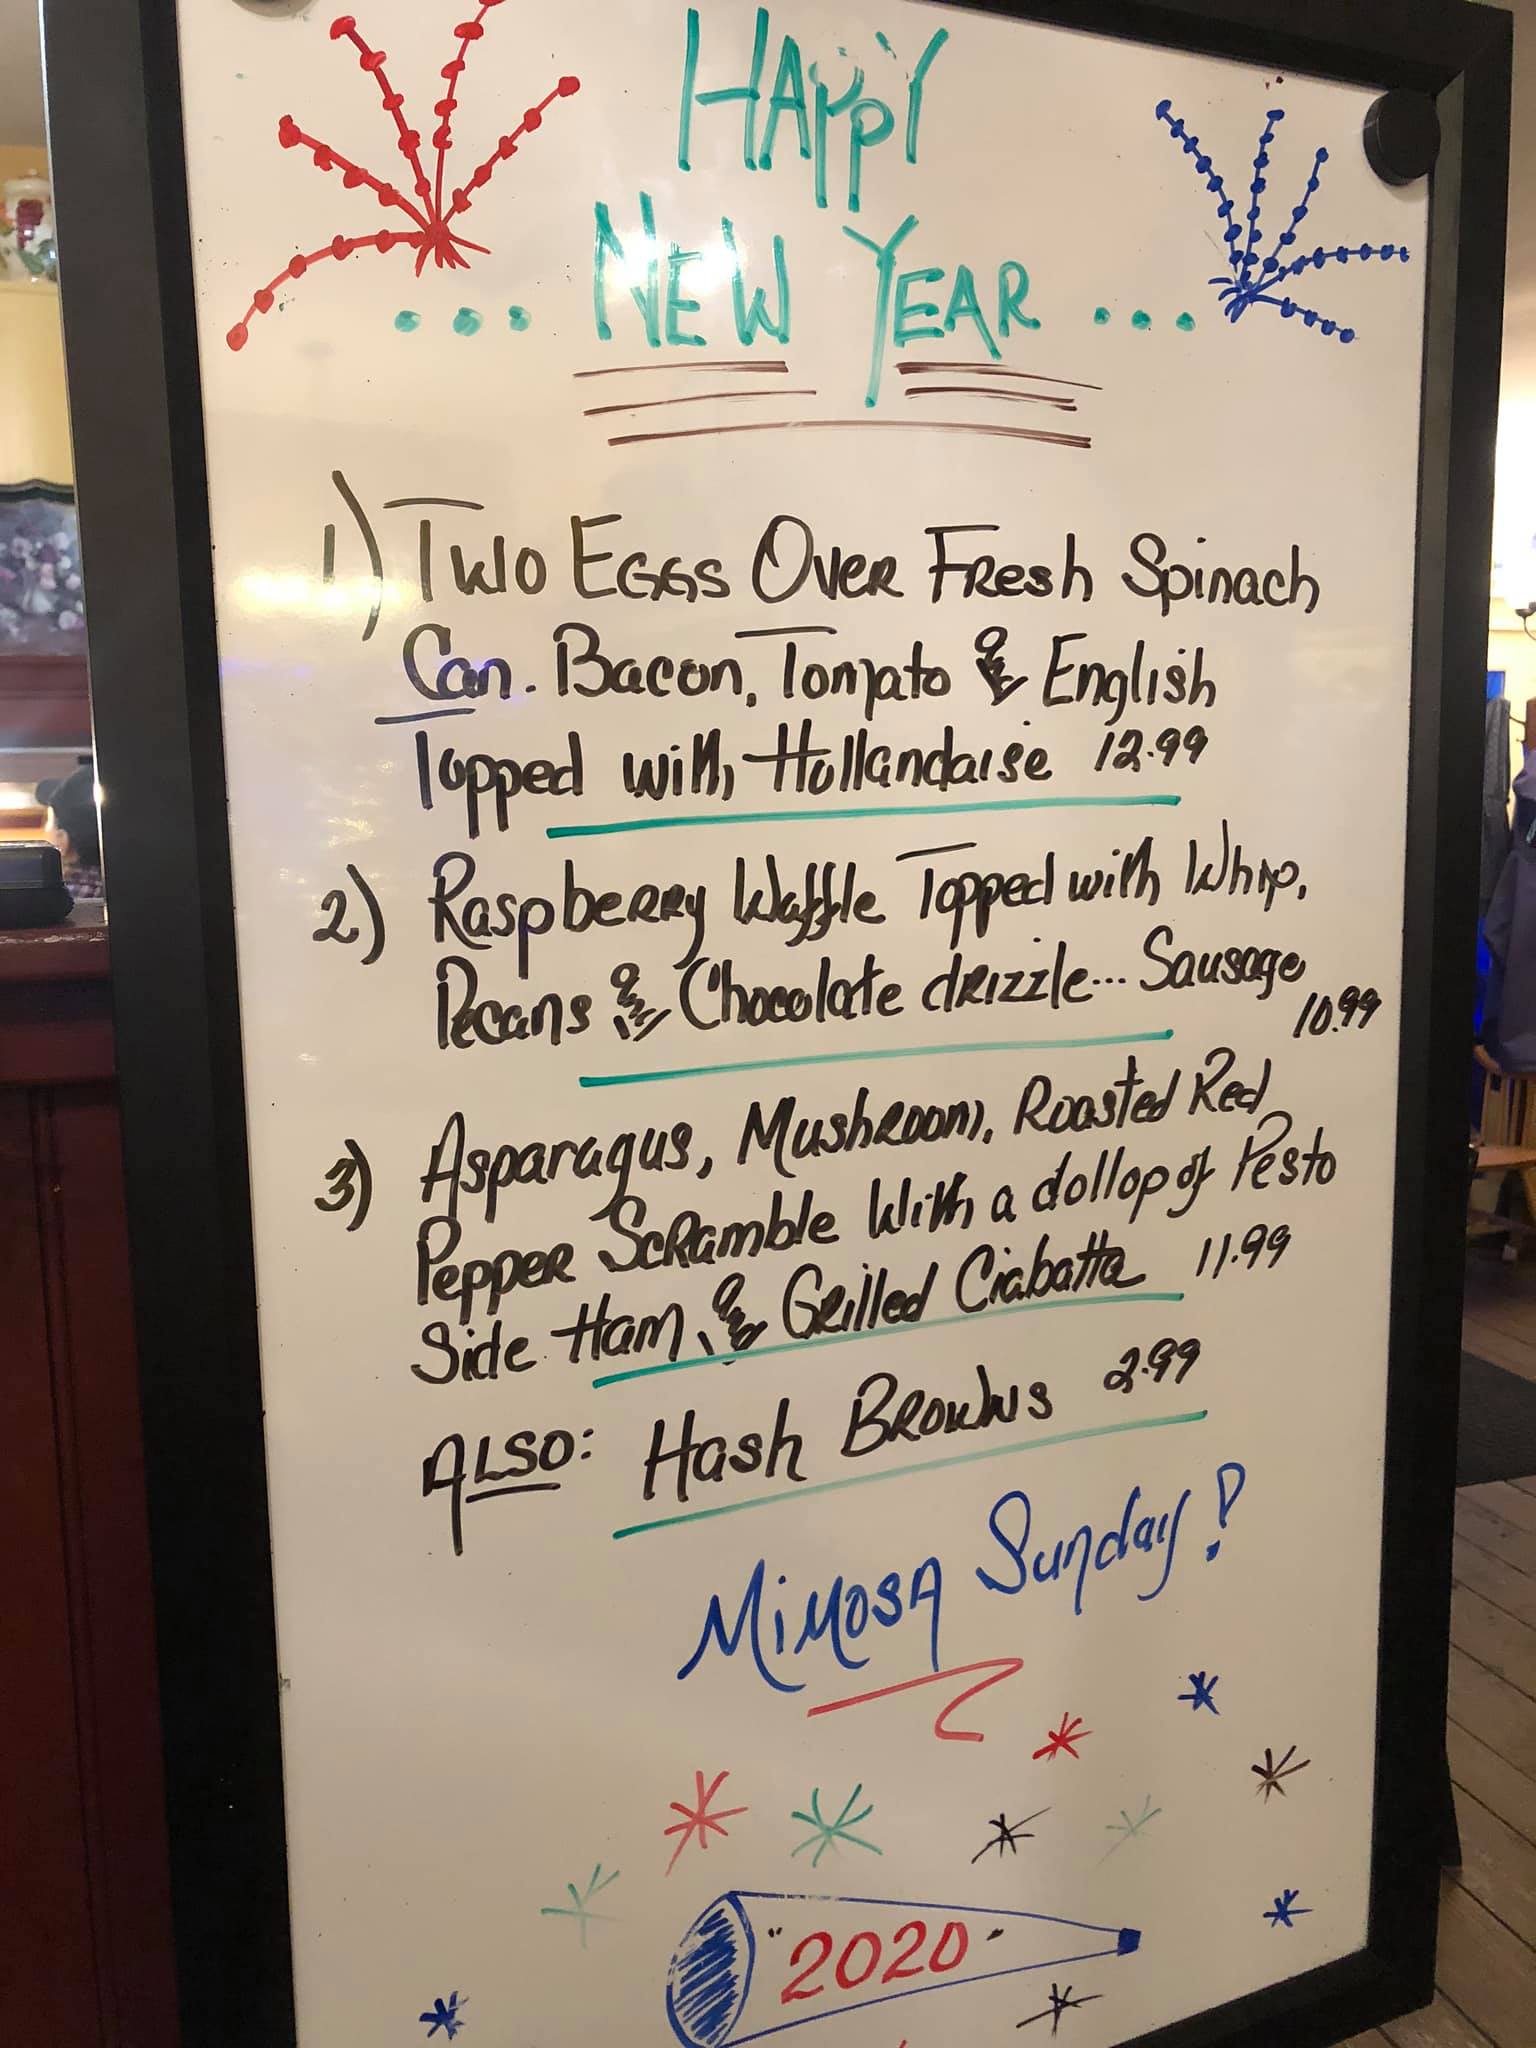 HAppY
... NEW YEAR ...
1) Two Eggs Over Fresh Spinach
Can. Bacon, Tomato & English
Topped with Hollandaise 12.99
2) Raspberry Waffle Topped with Whip,
Pecans & Chocolate drizzle... Sausage
10.99
3) Asparagus, Mushroom, Roasted Red
Pepper Scramble With a dollop of Pesto
Side Ham, & Grilled Ciabatta 11.99
ALSO: Hash Browns 2.99
Mimosa Sunday!
"2020"